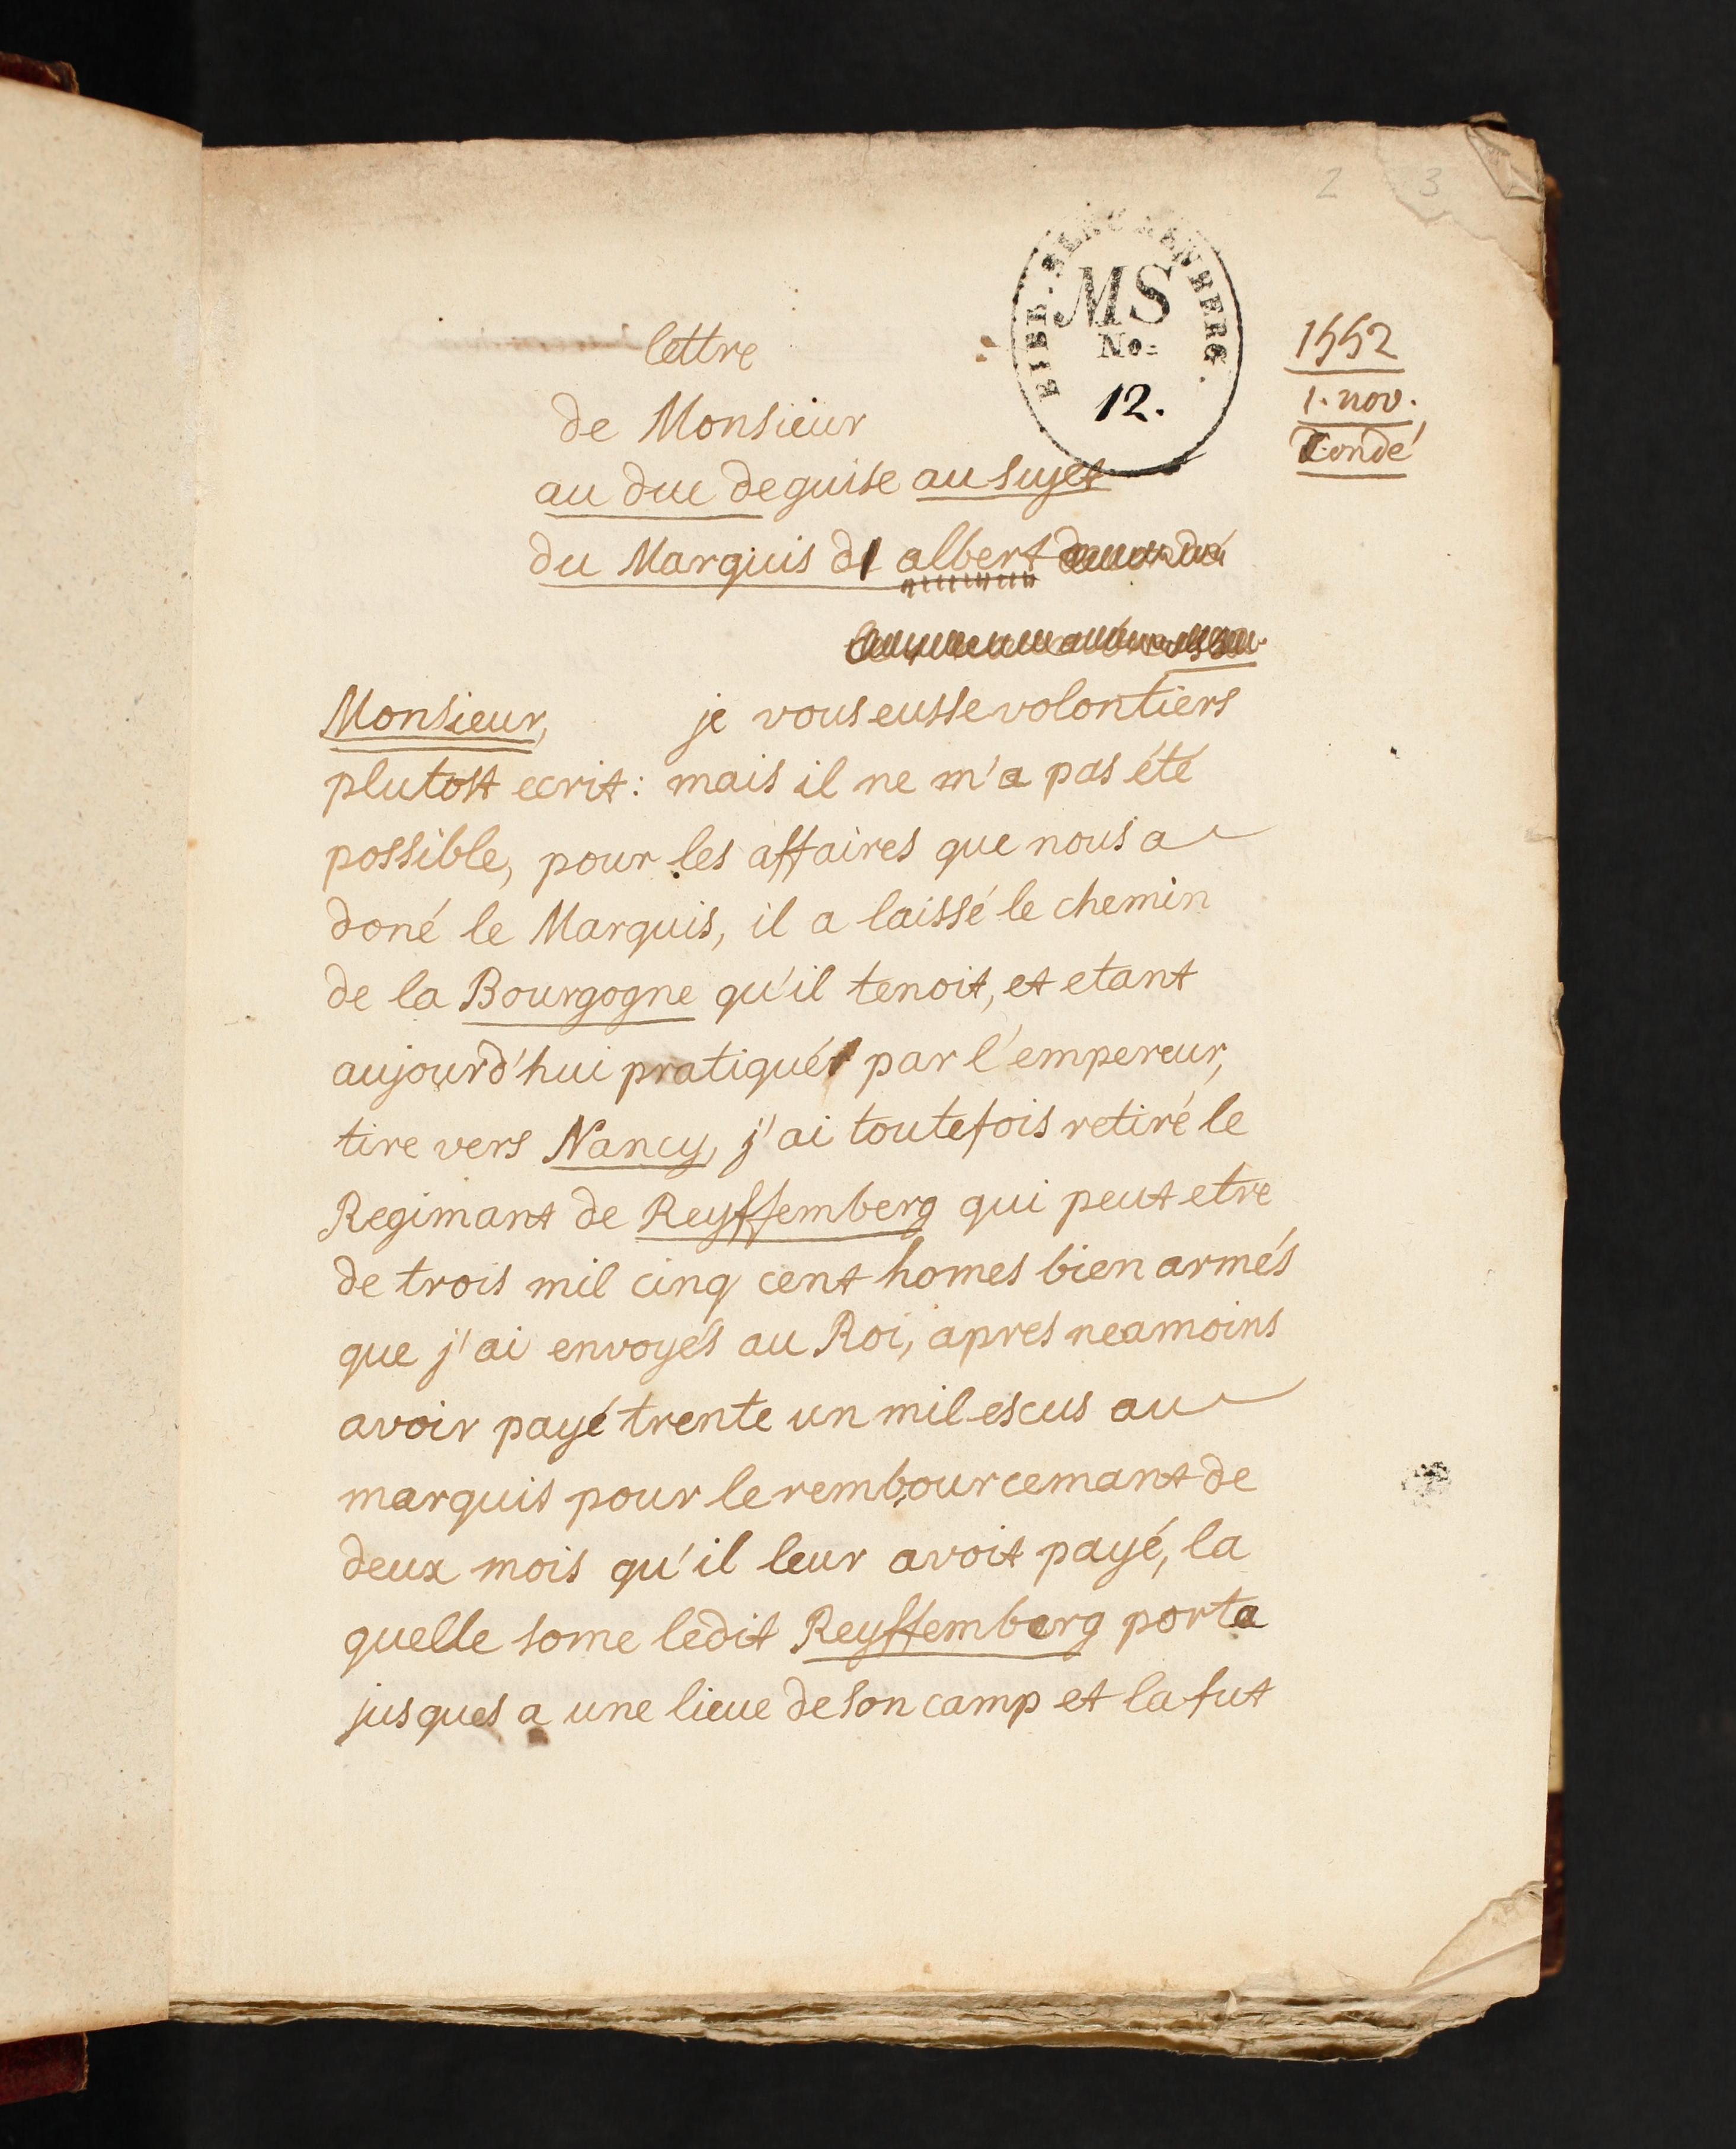 2 3
BIBL. BLANCKENBERG.
MS
No=
12.
1552
1. nov.
Condé
lettre
de Monsieur
au duc de guise au sujet
du Marquis d albert
Monsieur, je vous eusse volontiers
plutost ecrit: mais il ne m'a pas été
possible, pour les affaires que nous a
doné le Marquis, il a laissé le chemin
de la Bourgogne qu'il tenoit, et etant
aujourd'hui pratiqué par l'empereur,
tire vers Nancy, j'ai toutefois retiré le
Regimant de Reyffemberg qui peut etre
de trois mil cinq cent homes bien armés
que j'ai envoyés au Roi, apres neamoins
avoir payé trente un mil escus au
marquis pour le rembourcemant de
deux mois qu'il leur avoit payé, la
quelle some ledit Reyffemberg porta
jusques a une lieue de son camp et la fut